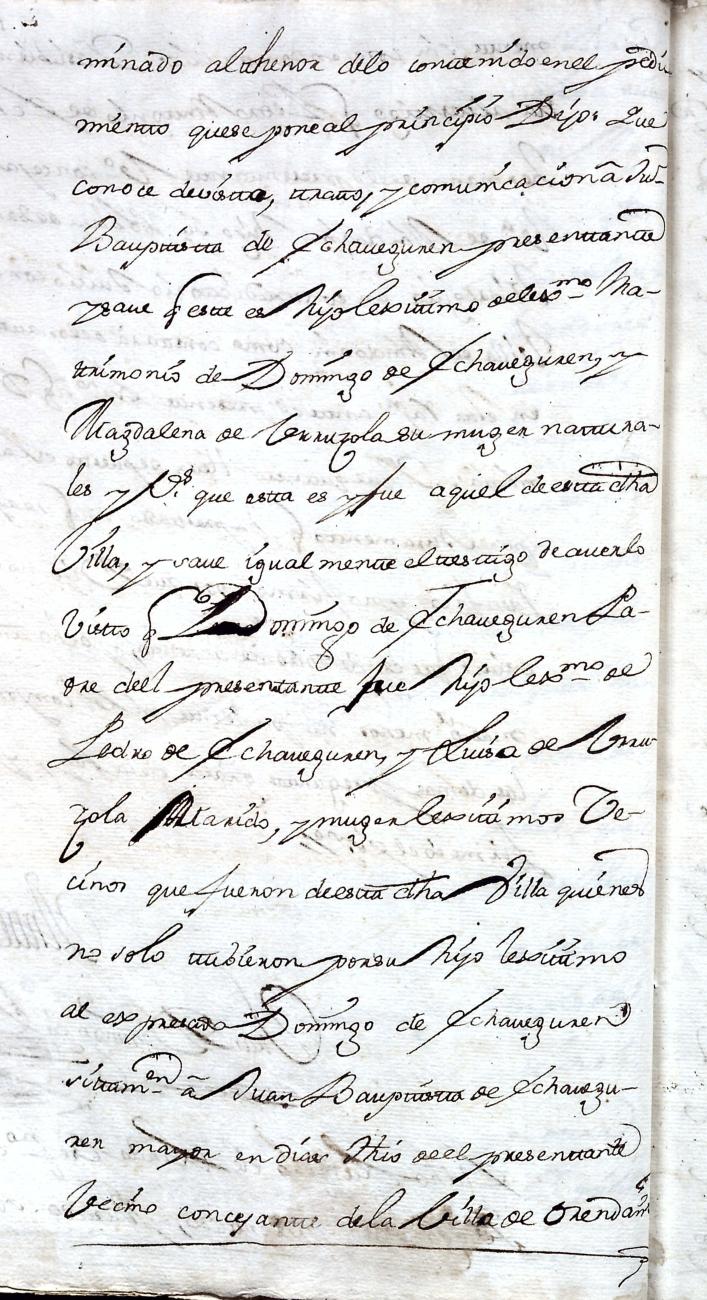 minado althenor delo contenido enel pedi
mentto quese pone al principio Dijo: Que
conoce devistta, tratto, y comunicacion â Jun
Bauptistta de Echaveguren presenttante
y save q estte es Hijo lexitimo de lexmo Ma-
trimonio de Domingo de Echaveguren, y
Magdalena de Urruzola su muger nattura-
les y Vs que estta es y fue aquel de estta dha
Villa, y save igual mente el testtigo de averlo
Vistto q Domingo de Echaveguren Pa-
dre deel presentante fue hijo lexmo de
Pedro de Echaveguren, y Luisa de Urru
zola Marido, y muger lexitimos Ve-
cinos que fueron de estta dha Villa quienes
no solo ttubieron por su Hijo lexitimo
al expresado Domingo de Echaveguren
sittamen â Juan Bauptistta de Echavegu-
ren mayor en dias thio deel presenttante
Vecino concejante dela Villa de Orendain